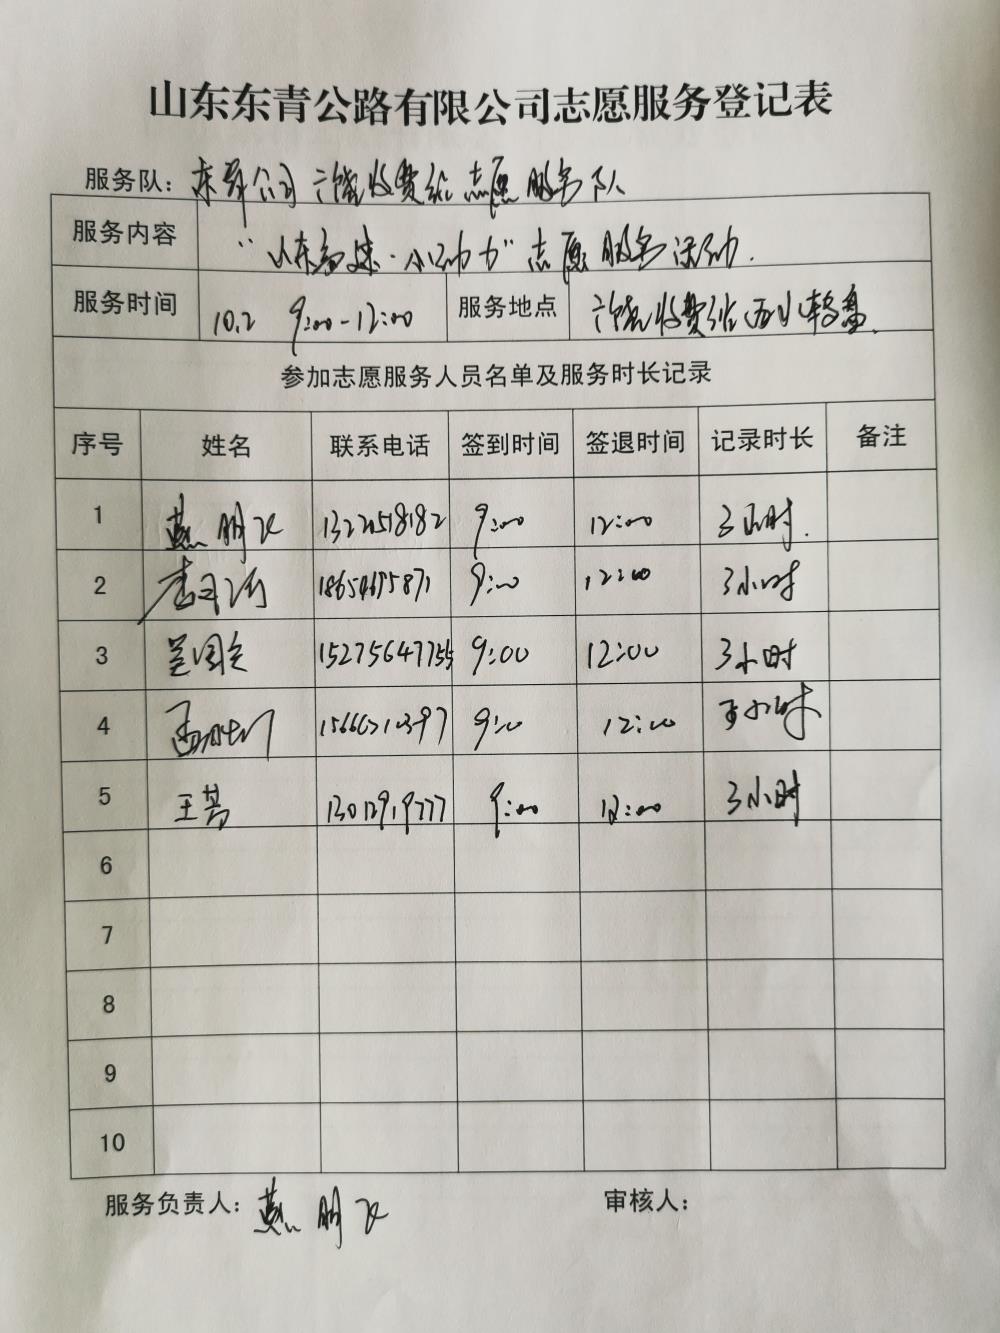 山东东青公路有限公司志愿服务登记表
服务队：东青公司 收费站志愿服务队
服务内容 “山东高速·小动力”志愿服务活动.
服务时间 10.2 9:00-12:00 服务地点 收费站西
参加志愿服务人员名单及服务时长记录
序号 姓名 联系电话 签到时间 签退时间 记录时长 备注
1 燕朋飞 9:00 12:00 3小时.
2 9:00 12:00 3小时
3 15275647755 9:00 12:00 3小时
4 9:00 12:00 小时
5 王 9:00 12:00 3小时
6
7
8
9
10
服务负责人：燕朋飞 审核人：